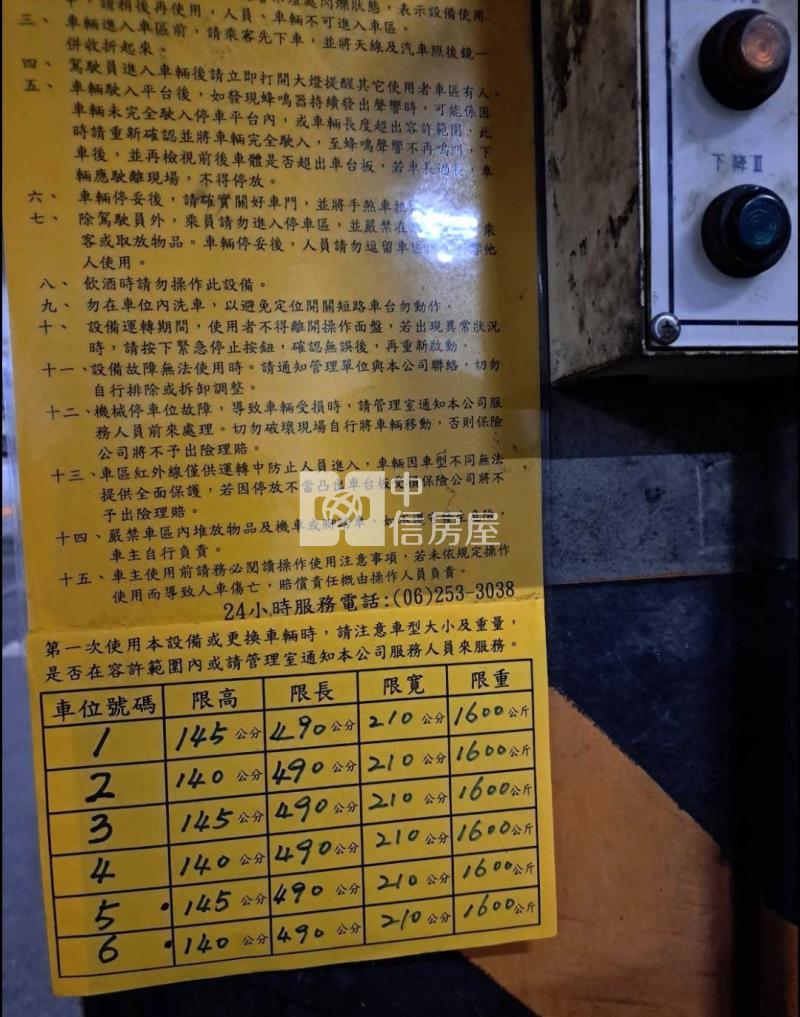 請稍後再使用,人員、車輛不可進入車區。
三、車輛進入車區前,請乘客先下車,並將天線及汽車照後鏡一
併收折起來。
四、駕駛員進入車輛後請立即打開大燈提醒其它使用者車區有人。
五、車輛駛入平台後,如發現蜂鳴器持續發出聲響時,可能係因
車輛未完全駛入停車平台內,或車輛長度超出容許範圍,此
時請重新確認並將車輛完全駛入,至蜂鳴聲響不再鳴叫,下
車後,並再檢視前後車體是否超出車台板,若車長過長,車
輛應駛離現場,不得停放。
六、車輛停妥後,請確實關好車門,並將手煞車
七、除駕駛員外,乘員請勿進入停車區,並嚴禁在 乘
客或取放物品。車輛停妥後,人員請勿逗留車區 他
人使用。
八、飲酒時請勿操作此設備。
九、勿在車位內洗車,以避免定位開關短路車台勿動作。
十、設備運轉期間,使用者不得離開操作面盤,若出現異常狀況
時,請按下緊急停止按鈕,確認無誤後,再重新啟動。
十一、設備故障無法使用時。請通知管理單位與本公司聯絡,切勿
自行排除或拆卸調整。
十二、機械停車位故障,導致車輛受損時,請管理室通知本公司服
務人員前來處理。切勿破壞現場自行將車輛移動,否則保險
公司將不予出險理賠。
十三、車區紅外線僅供運轉中防止人員進入,車輛因車型不同無法
提供全面保護,若因停放不當凸出車台板受損保險公司將不
予出險理賠。
十四、嚴禁車區內堆放物品及機車或腳踏車,
車主自行負責。
十五、車主使用前請務必閱讀操作使用注意事項,若未依規定操作
使用而導致人車傷亡,賠償責任概由操作人員負責。
24小時服務電話:(06)253-3038
第一次使用本設備或更換車輛時,請注意車型大小及重量,
是否在容許範圍內或請管理室通知本公司服務人員來服務。
車位號碼 限高 限長 限寬 限重
1 145公分 490公分 210公分 1600公斤
2 140公分 490公分 210公分 1600公斤
3 145公分 490公分 210公分 1600公斤
4 140公分 490公分 210公分 1600公斤
5 145公分 490公分 210公分 1600公斤
6 140公分 490公分 210公分 1600公斤
下降Ⅱ
中信房屋